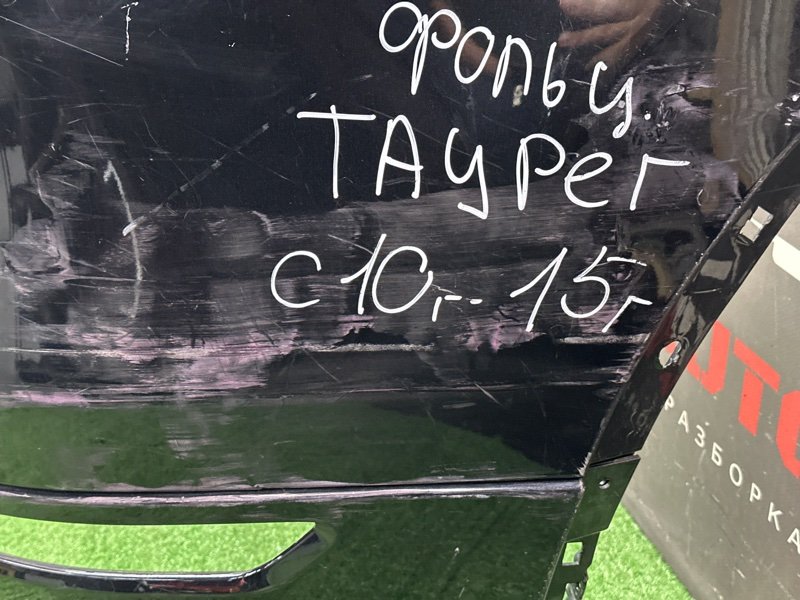 Фольц.
ТАУРег
с 10г.-15г
UTO
РАЗБОРКА